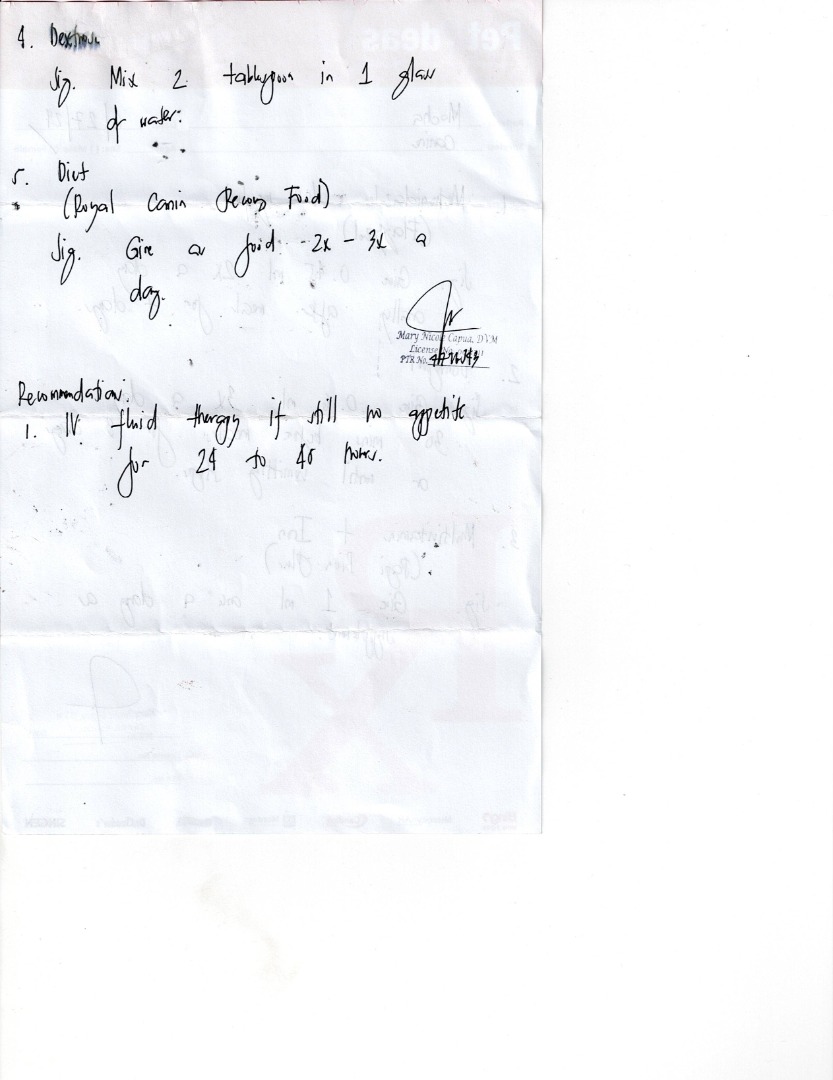 4. Dextrose
Sig. Mix 2 tablespoon in 1 glass
of water.
5. Diet
(Royal Canin Recovery Food)
Sig. Give as food 2x - 3x a
day.
Mary Nicole Capua, DVM
License No.
PTR No.
Recommendation:
1. IV fluid therapy if still no appetite
for 24 to 48 hours.